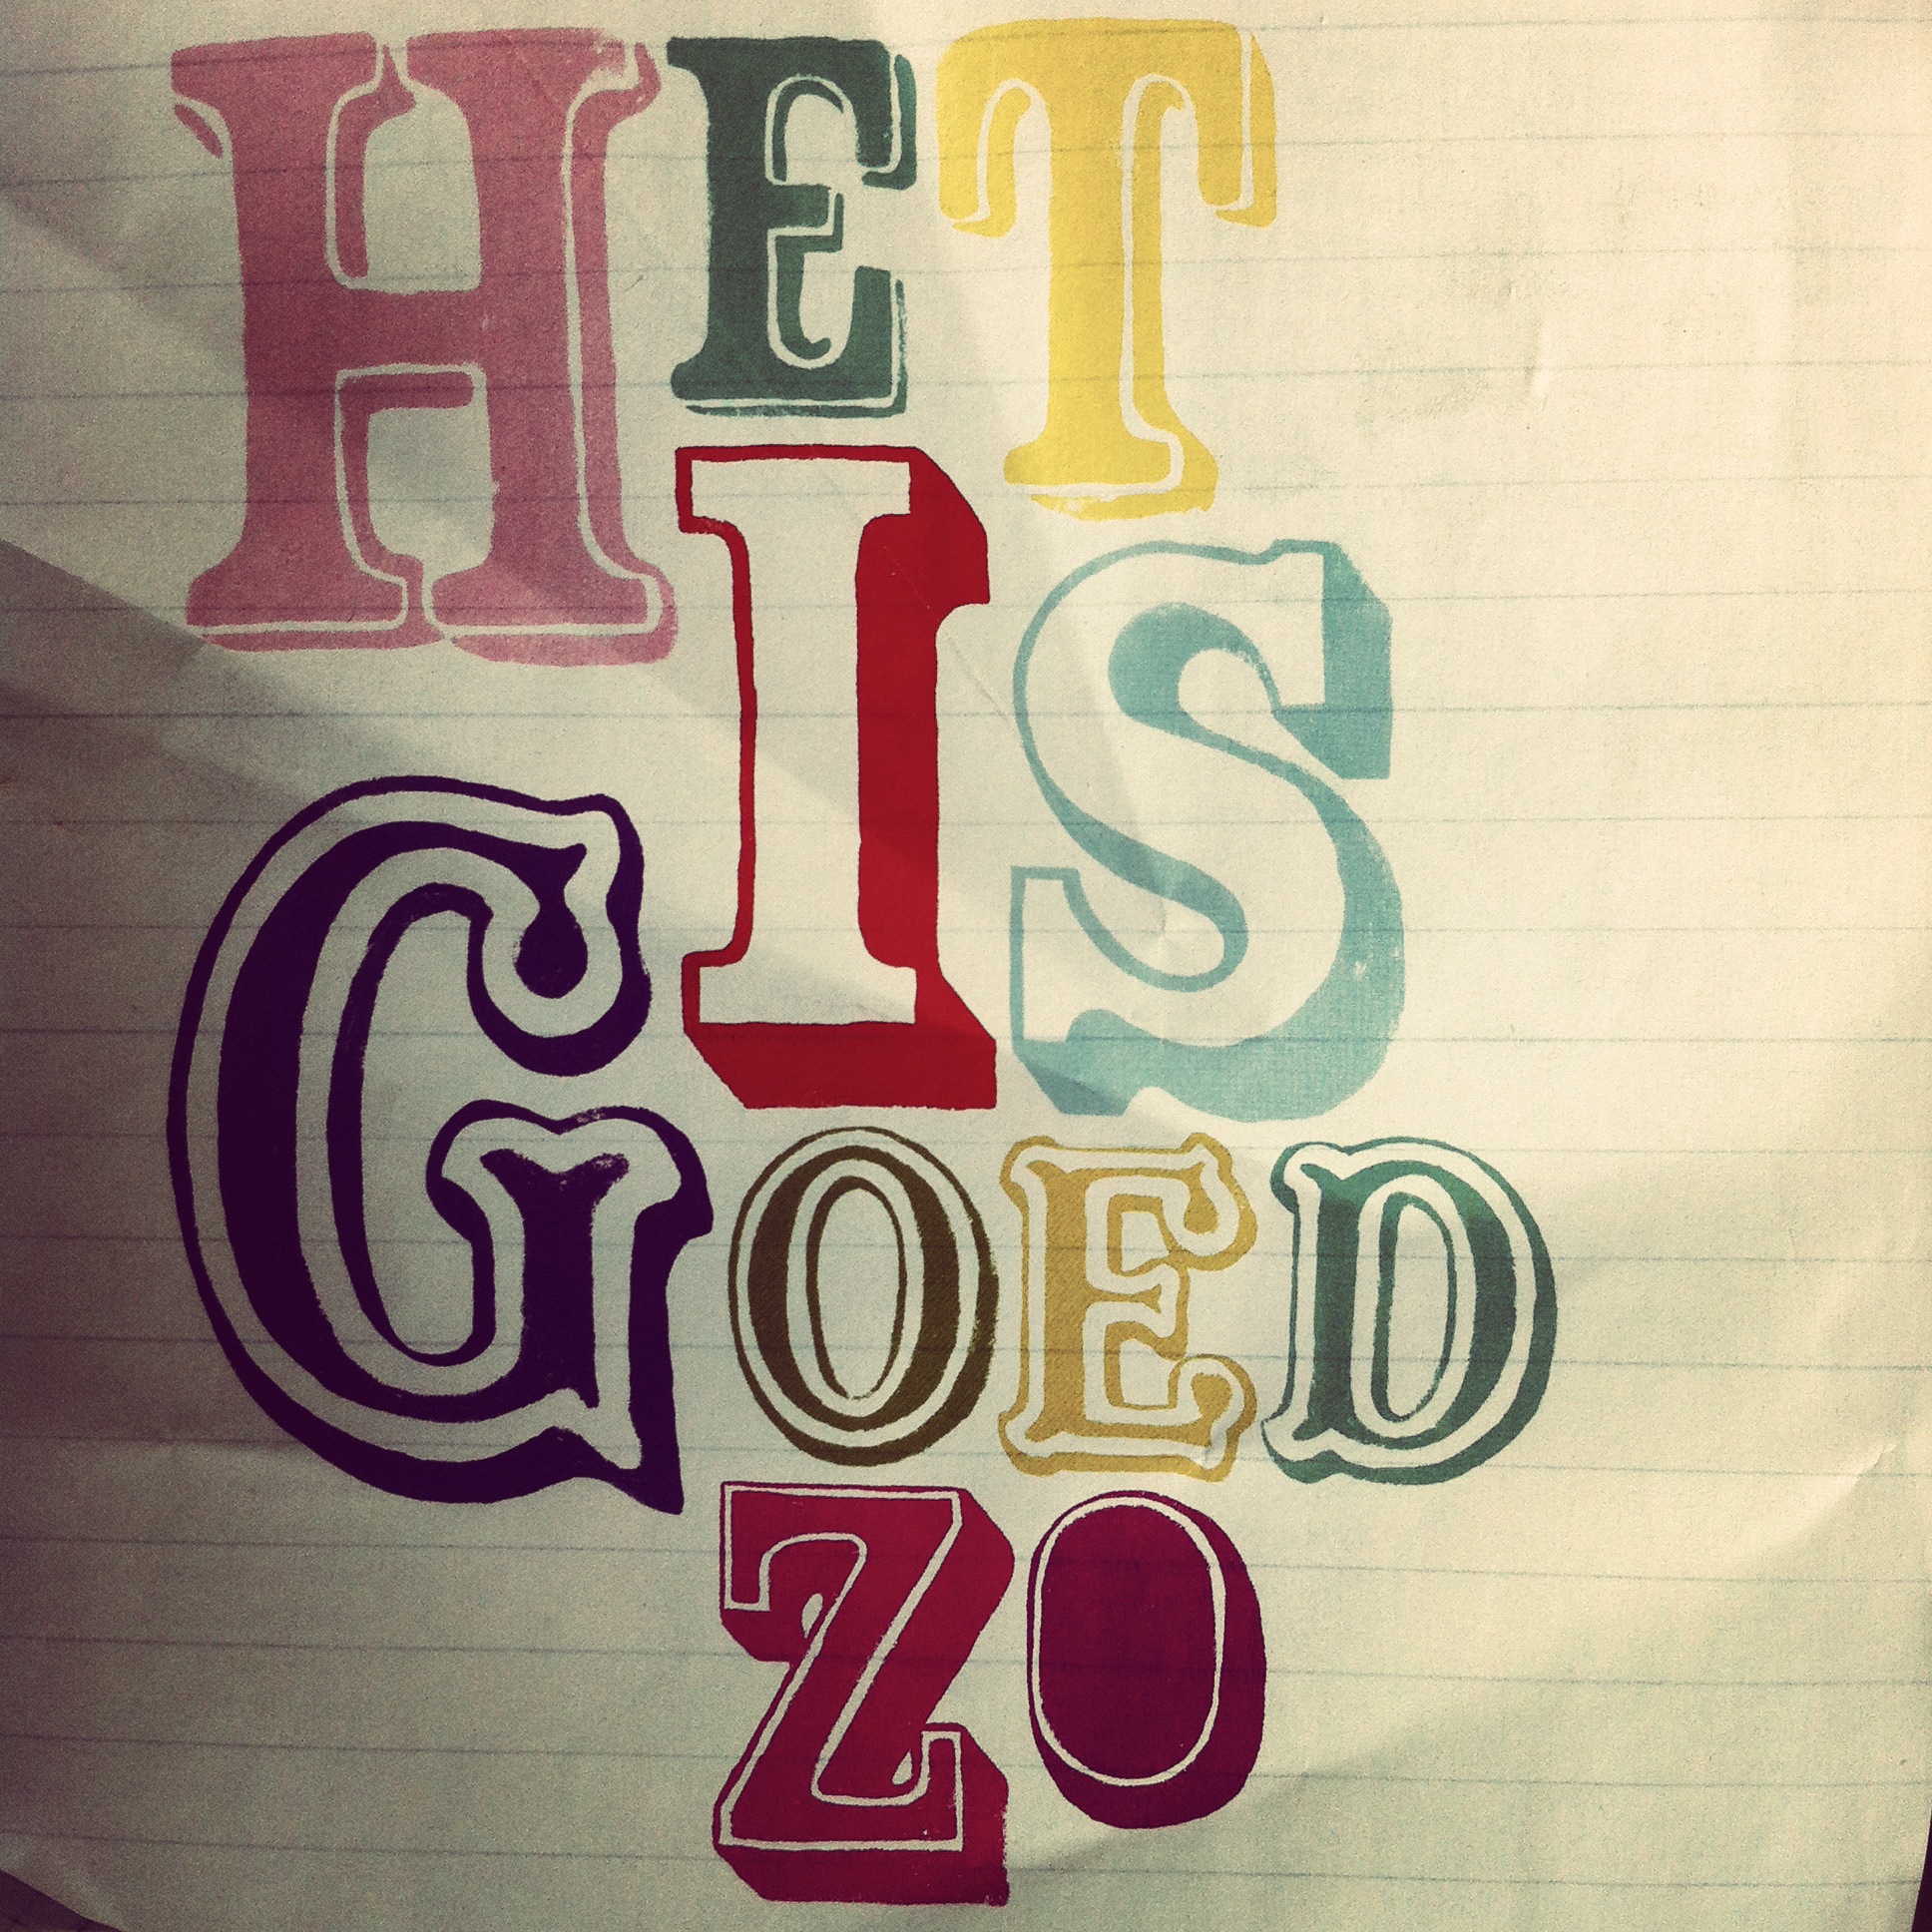 HET
IS
GOED
ZO